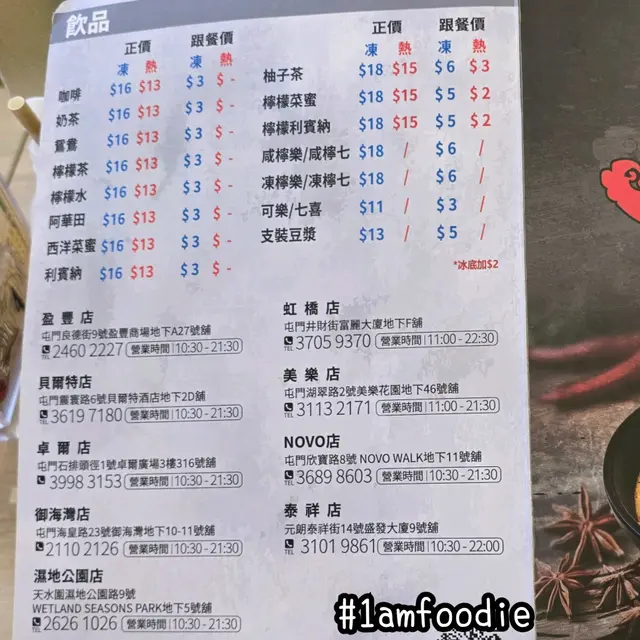 飲品
正價 跟餐價
凍 熱 凍 熱
咖啡 $16 $13 $3 $ -
奶茶 $16 $13 $3 $ -
鴛鴦 $16 $13 $3 $ -
檸檬茶 $16 $13 $3 $ -
檸檬水 $16 $13 $3 $ -
阿華田 $16 $13 $3 $ -
西洋菜蜜 $16 $13 $3 $ -
利賓納 $16 $13 $3 $ -
正價 跟餐價
凍 熱 凍 熱
柚子茶 $18 $15 $6 $3
檸檬菜蜜 $18 $15 $5 $2
檸檬利賓納 $18 $15 $5 $2
咸檸樂/咸檸七 $18 / $6 /
凍檸樂/凍檸七 $18 / $6 /
可樂/七喜 $11 / $3 /
支裝豆漿 $13 / $5 /
*冰底加$2
盈豐店
屯門良德街9號盈豐商場地下A27號舖
TEL 2460 2227 營業時間 10:30 - 21:30
貝爾特店
屯門震寰路6號貝爾特酒店地下2D舖
TEL 3619 7180 營業時間 10:30 - 21:30
卓爾店
屯門石排頭徑1號卓爾廣場3樓316號舖
TEL 3998 3153 營業時間 10:30 - 21:30
御海灣店
屯門海皇路23號御海灣地下10-11號舖
TEL 2110 2126 營業時間 10:30 - 21:30
濕地公園店
天水圍濕地公園路9號
WETLAND SEASONS PARK地下5號舖
TEL 2626 1026 營業時間 10:30 - 21:30
虹橋店
屯門井財街富麗大廈地下F舖
TEL 3705 9370 營業時間 11:00 - 22:30
美樂店
屯門湖翠路2號美樂花園地下46號舖
TEL 3113 2171 營業時間 11:00 - 21:30
NOVO店
屯門欣寶路8號 NOVO WALK地下11號舖
TEL 3689 8603 營業時間 10:30 - 21:30
泰祥店
元朗泰祥街14號盛發大廈9號舖
TEL 3101 9861 營業時間 10:30 - 22:00
#1amfoodie